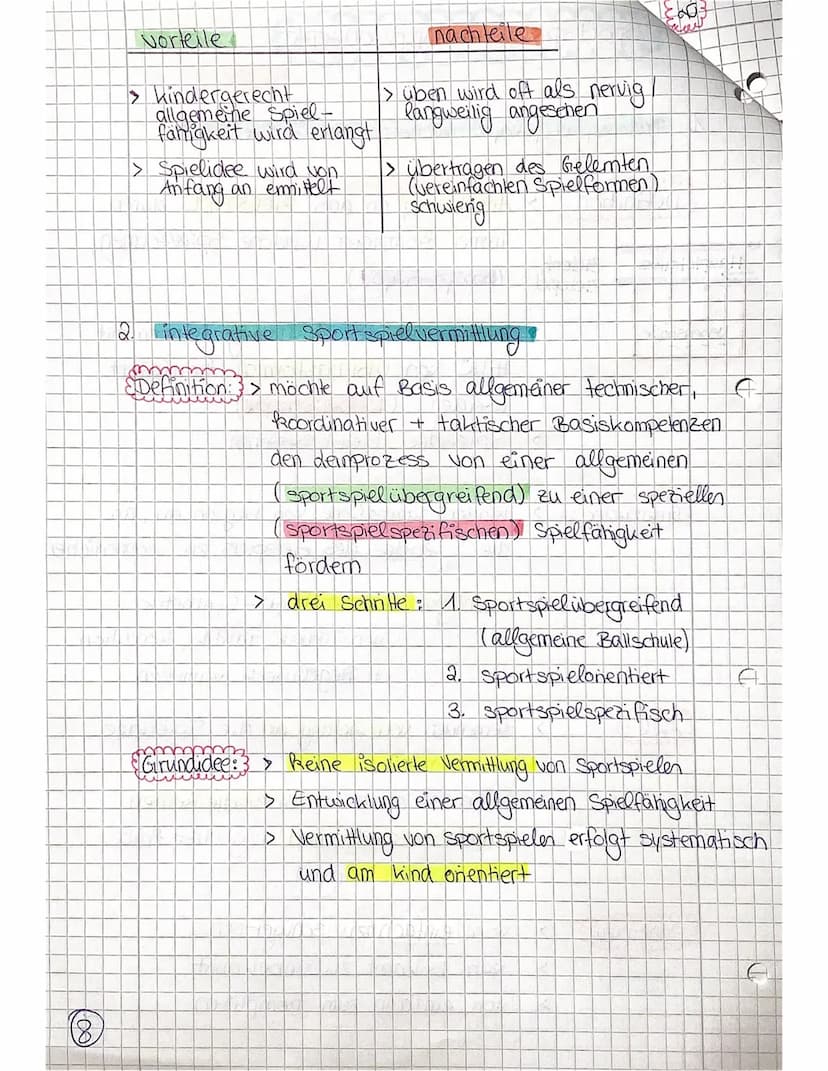 vorteile
nachteile
> kindergerecht
allgemeine Spiel-
fähigkeit wird erlangt
> Spielidee wird von
Anfang an ermittelt
> üben wird oft als nervig /
langweilig angesehen
> übertragen des Gelernten
(vereinfachten Spielformen)
schwierig
2. integrative Sportspielvermittlung
Definition: > möchte auf Basis allgemeiner technischer,
koordinativer + taktischer Basiskompetenzen
den Lernprozess von einer allgemeinen
(sportspielübergreifend) zu einer speziellen
(sportspielspezifischen) Spielfähigkeit
fördern
> drei Schritte: 1. Sportspielübergreifend
(allgemeine Ballschule)
2. sportspielorientiert
3. sportspielspezifisch
Grundidee: > keine isolierte Vermittlung von Sportspielen
> Entwicklung einer allgemeinen Spielfähigkeit
> Vermittlung von Sportspielen erfolgt systematisch
und am Kind orientiert
8